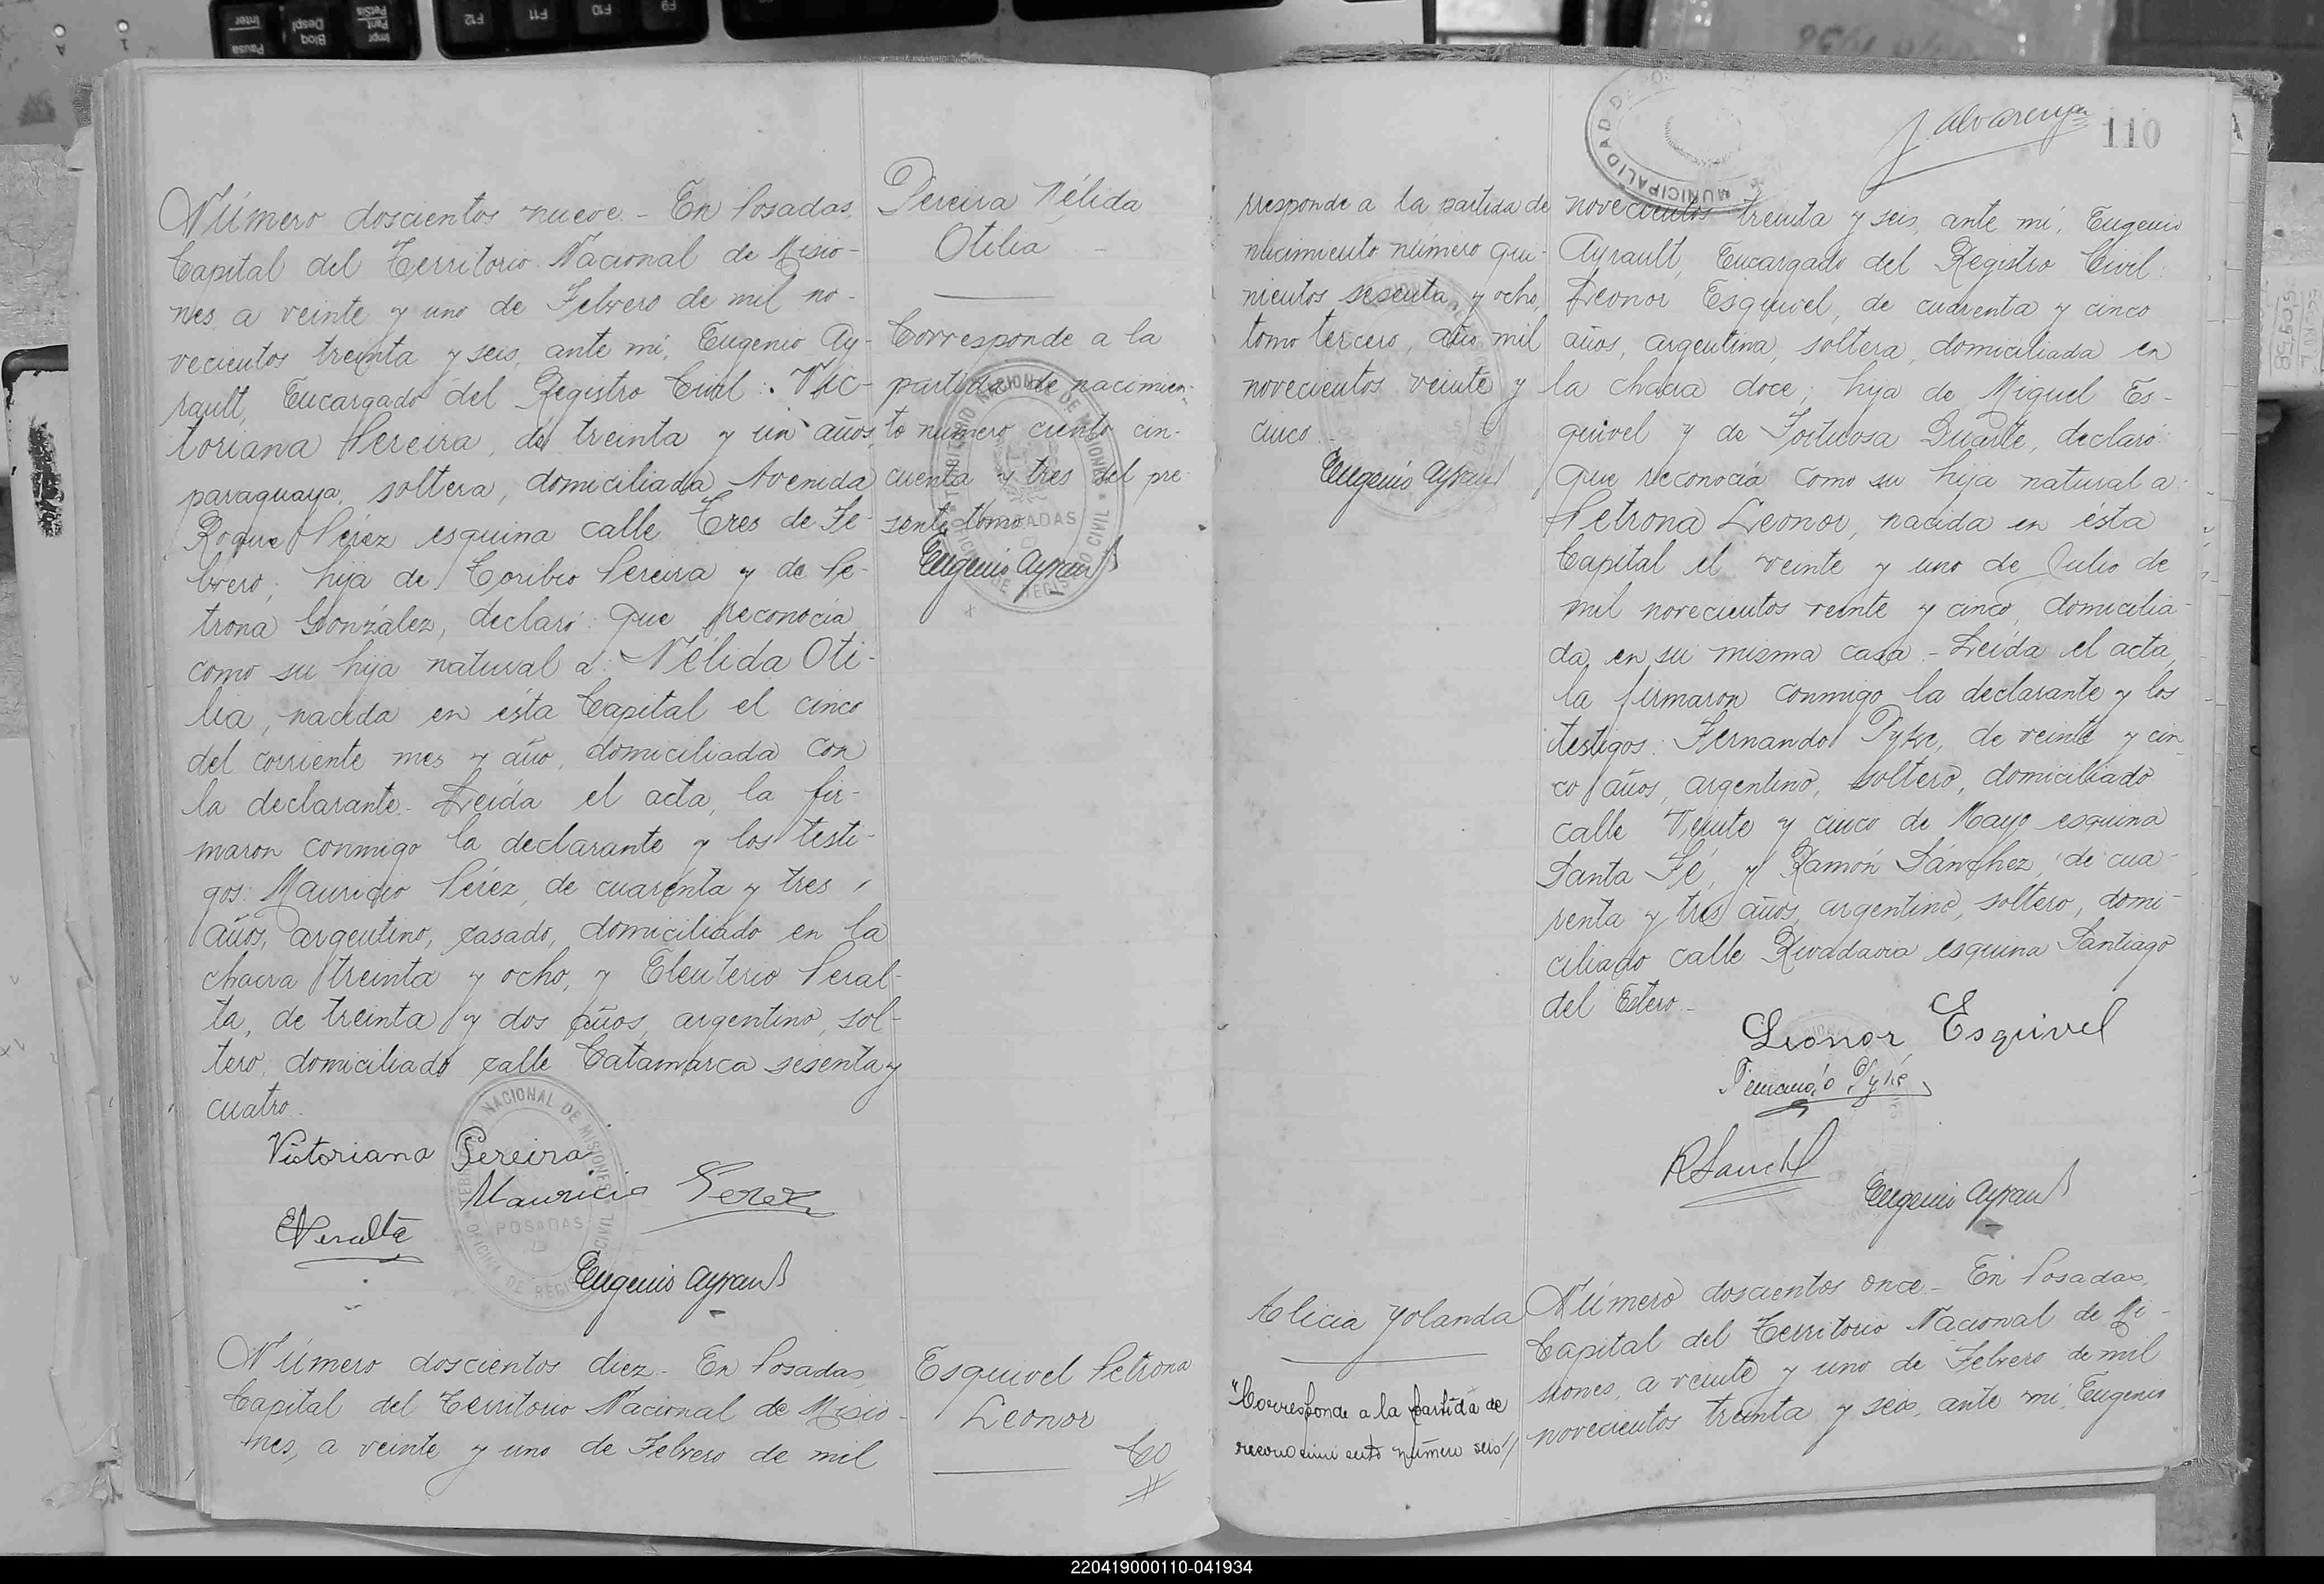 Número doscientos nueve.- En Posadas,
Capital del Territorio Nacional de Misio-
nes, a veinte y uno de Febrero de mil no-
vecientos treinta y seis, ante mí, Eugenio Ay-
rault, Encargado del Registro Civil: Vic-
toriana Pereira, de treinta y un años,
paraguaya, soltera, domiciliada Avenida
Roque Pérez esquina calle Tres de Fe-
brero; hija de Toribio Pereira y de Pe-
trona González, declaró: que reconocía
como su hija natural a: Nélida Oti-
lia, nacida en ésta Capital el cinco
del corriente mes y año, domiciliada con
la declarante.- Leída el acta, la fir-
maron conmigo la declarante y los testi-
gos: Mauricio Pérez, de cuarenta y tres
años, argentino, casado, domiciliado en la
chacra treinta y ocho, y Eleuterio Peral-
ta, de treinta y dos años, argentino, sol-
tero, domiciliado calle Catamarca sesenta y
cuatro.
Victoriana Pereira
Mauricio Perez
EPeralta
Eugenio Ayrault
NACIONAL DE MISIONES
POSADAS
OFICINA DE REGISTRO CIVIL
Número doscientos diez.- En Posadas,
Capital del Territorio Nacional de Misio-
nes, a veinte y uno de Febrero de mil
Pereira Nélida
Otilia -
Corresponde a la
partida de nacimien-
to número ciento cin-
cuenta y tres del pre-
sente tomo
Eugenio Ayrault
TERRITORIO NACIONAL DE MISIONES
POSADAS
OFICINA DE REGISTRO CIVIL
Esquivel Petrona
Leonor
Co
rresponde a la partida de
nacimiento número qui-
nientos sesenta y ocho,
tomo tercero, año mil
novecientos veinte y
cinco.-
Eugenio Ayrault
Alicia Yolanda
"Corresponde a la partida de
reconocimiento número seis"
MUNICIPALIDAD
J Alvarenga
110
novecientos treinta y seis, ante mí, Eugenio
Ayrault, Encargado del Registro Civil:
Leonor Esquivel, de cuarenta y cinco
años, argentina, soltera, domiciliada en
la chacra doce; hija de Miguel Es-
quivel y de Fortuosa Duarte, declaró:
que reconocía como su hija natural a:
Petrona Leonor, nacida en ésta
Capital el veinte y uno de Julio de
mil novecientos veinte y cinco, domicilia-
da en su misma casa.- Leída el acta,
la firmaron conmigo la declarante y los
testigos: Fernando Tyke, de veinte y cin-
co años, argentino, soltero, domiciliado
calle Veinte y cinco de Mayo esquina
Santa Fé, y Ramón Sánchez, de cua-
renta y tres años, argentino, soltero, domi-
ciliado calle Rivadavia esquina Santiago
del Estero.-
Leonor Esquivel
Fernando Tyke
RSanch
Eugenio Ayrault
Número doscientos once.- En Posadas,
Capital del Territorio Nacional de Mi-
siones, a veinte y uno de Febrero de mil
novecientos treinta y seis, ante mí, Eugenio
220419000110-041934